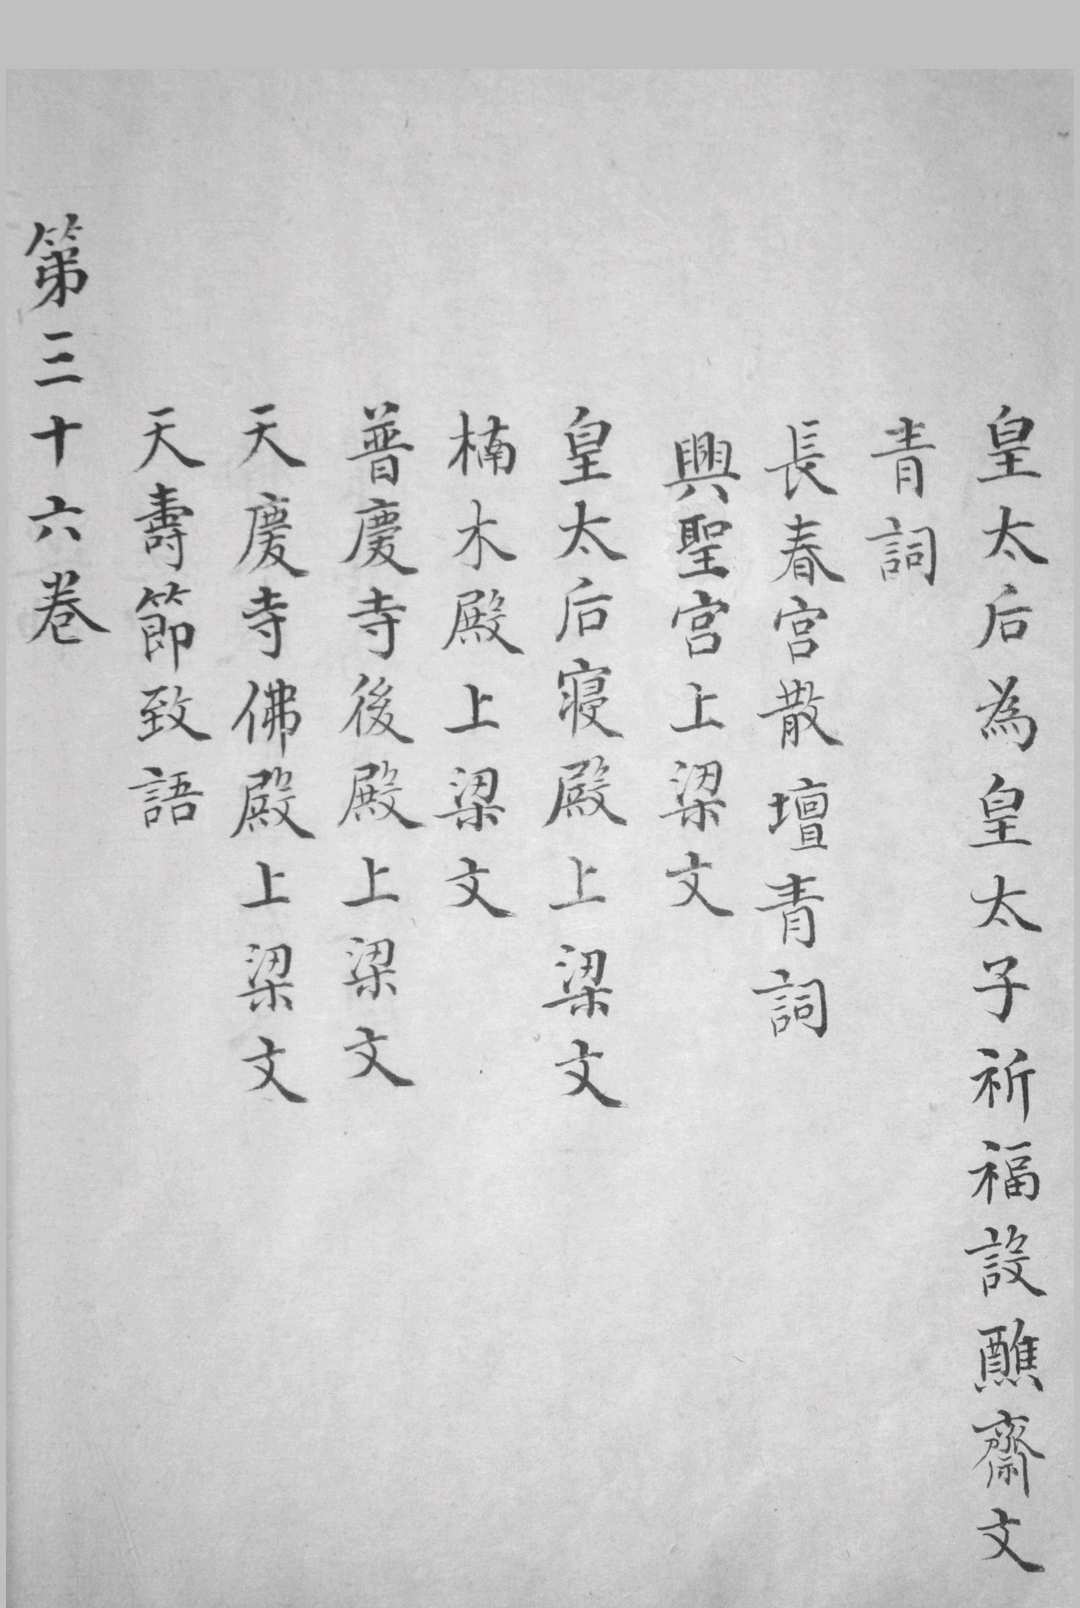 皇太后為皇太子祈福設醮齋文
青詞
長春宮散壇青詞
興聖宮上梁文
皇太后寢殿上梁文
楠木殿上梁文
普慶寺後殿上梁文
天慶寺佛殿上梁文
天壽節致語
第三十六卷